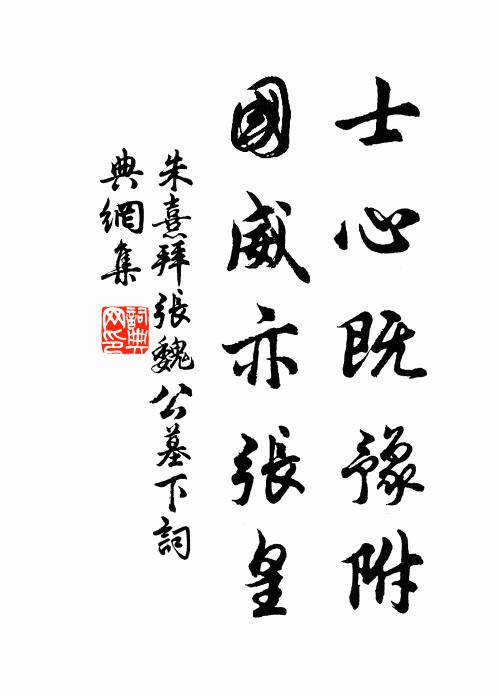 士心既豫附
國威亦張皇
朱熹拜張魏公墓下詞
典網集
詞典
网印